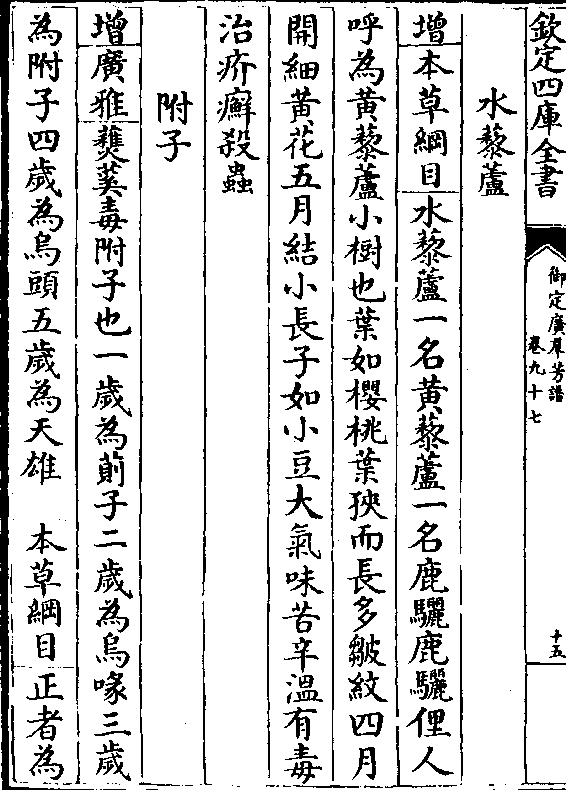 欽定四庫全書
御定廣羣芳譜
卷九十七
十五
水藜蘆
增本草綱目水藜蘆一名黄藜蘆一名鹿驪鹿驪俚人
呼為黄藜蘆小樹也葉如櫻桃葉狹而長多皺紋四月
開細黄花五月結小長子如小豆大氣味苦辛溫有毒
治疥癬殺蟲
附子
增廣雅㷇奚毒附子也一歲為萴子二歲為烏喙三歲
為附子四歲為烏頭五歲為天雄　本草綱目正者為